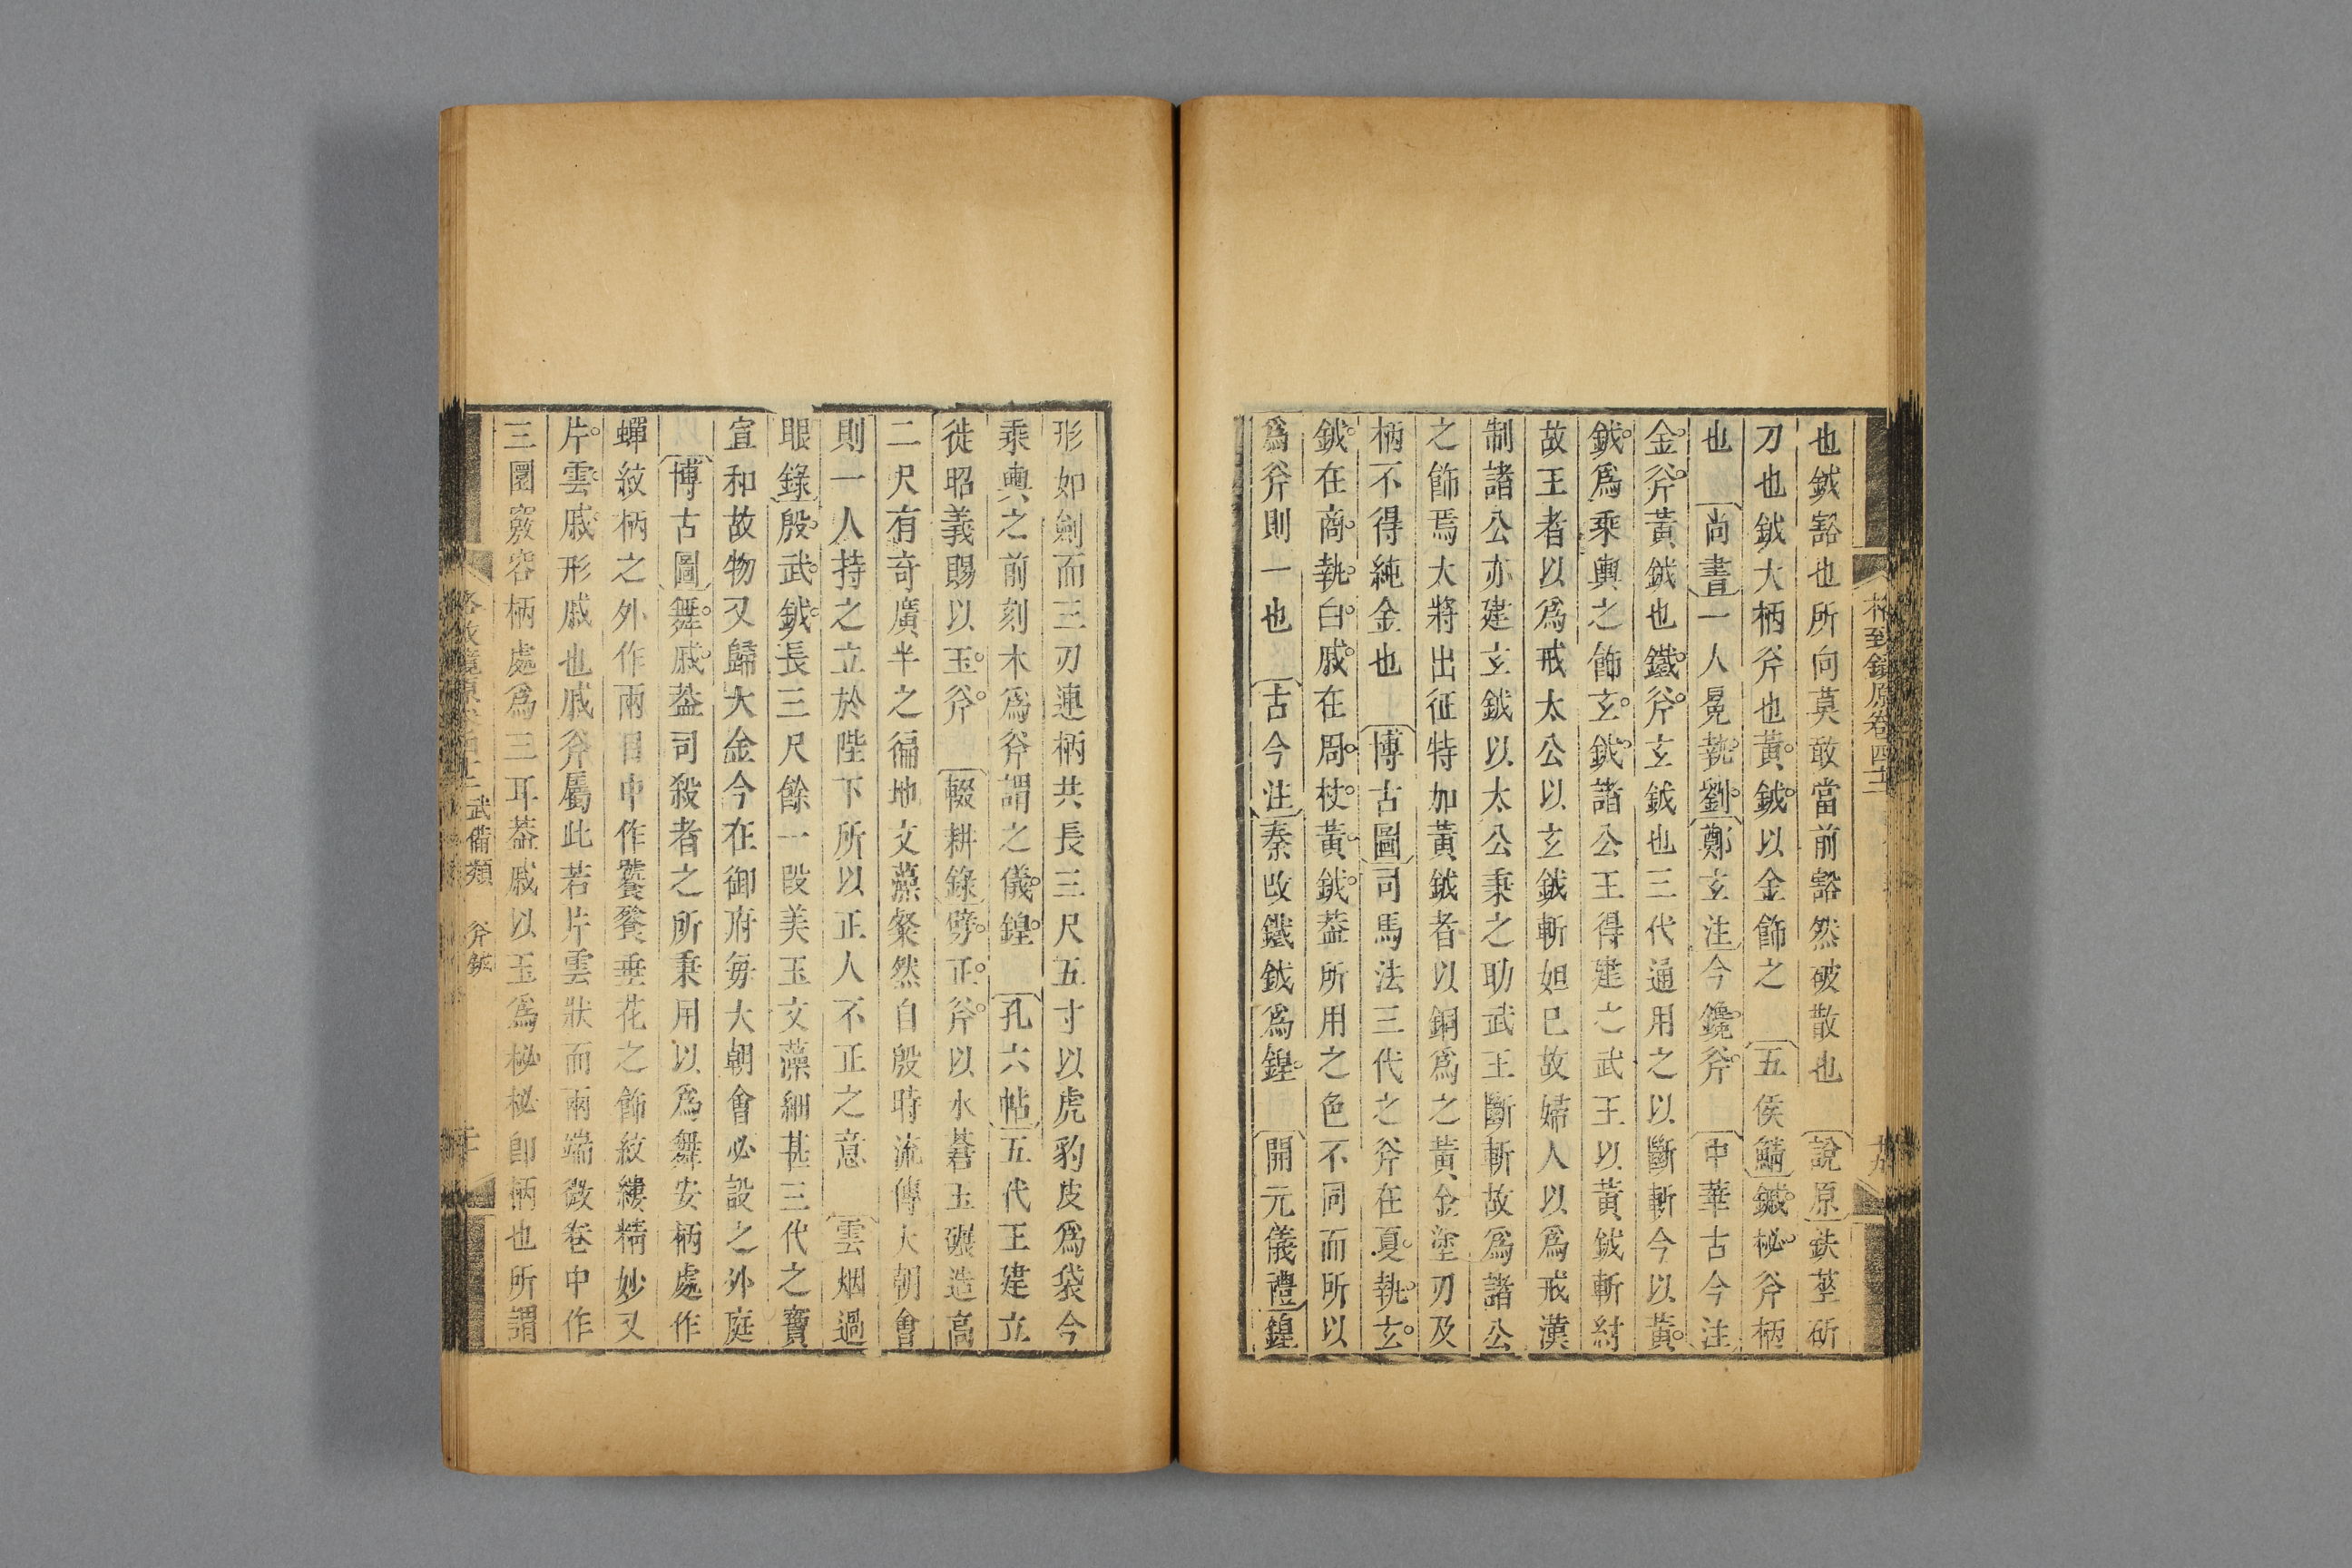 格致鏡原卷四十二
十九
也鉞豁也所向莫敢當前豁然破散也 說原鈇莝斫
刀也鉞大柄斧也黃鉞以金飾之 五侯鯖鏚柲斧柄
也 尚書一人冕執劉鄭玄注今鑱斧 中華古今注
金斧黃鉞也鐵斧玄鉞也三代通用之以斷斬今以黃
鉞爲乘輿之飾玄鉞諸公王得建之武王以黃鉞斬紂
故王者以爲戒太公以玄鉞斬妲己故婦人以爲戒漢
制諸公亦建玄鉞以太公秉之助武王斷斬故爲諸公
之飾焉大將出征特加黃鉞者以銅爲之黃金塗刃及
柄不得純金也 博古圖司馬法三代之斧在夏執玄
鉞在商執白戚在周杖黃鉞葢所用之色不同而所以
爲斧則一也 古今注秦改鐵鉞爲鍠 開元儀禮鍠
形如劍而三刃連柄共長三尺五寸以虎豹皮爲袋今
乘輿之前刻木爲斧謂之儀鍠 孔六帖五代王建立
徙昭義賜以玉斧 輟耕錄劈正斧以水碧玉碾造高
二尺有奇廣半之徧地文藻粲然自殷時流傳大朝會
則一人持之立於陛下所以正人不正之意 雲烟過
眼錄殷武鉞長三尺餘一段美玉文藻細甚三代之寶
宣和故物又歸大金今在御府每大朝會必設之外庭
博古圖舞戚葢司殺者之所秉用以爲舞安柄處作
蟬紋柄之外作兩目中作饕餮垂花之飾紋縷精妙又
片雲戚形戚也戚斧屬此若片雲狀而兩端微卷中作
三圜竅容柄處爲三耳葢戚以玉爲柲柲卽柄也所謂
格致鏡原 武備類 斧鉞